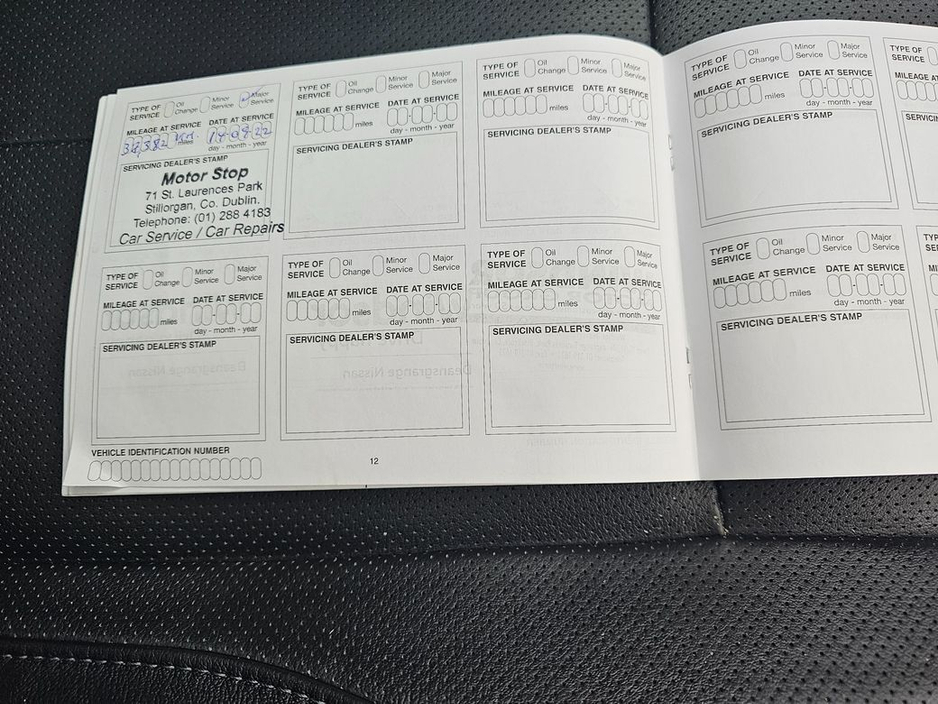 TYPE OF SERVICE Oil Change Minor Service Major Service
MILEAGE AT SERVICE DATE AT SERVICE
38,382 KM. miles
day - month - year
SERVICING DEALER'S STAMP
Motor Stop
71 St. Laurences Park
Stillorgan, Co. Dublin.
Telephone: (01) 288 4183
Car Service / Car Repairs
TYPE OF SERVICE Oil Change Minor Service Major Service
MILEAGE AT SERVICE DATE AT SERVICE
miles
day - month - year
SERVICING DEALER'S STAMP
TYPE OF SERVICE Oil Change Minor Service Major Service
MILEAGE AT SERVICE DATE AT SERVICE
miles
day - month - year
SERVICING DEALER'S STAMP
TYPE OF SERVICE Oil Change Minor Service Major Service
MILEAGE AT SERVICE DATE AT SERVICE
miles
day - month - year
SERVICING DEALER'S STAMP
TYPE OF SERVICE Oil Change Minor Service Major Service
MILEAGE AT SERVICE DATE AT SERVICE
miles
day - month - year
SERVICING DEALER'S STAMP
TYPE OF SERVICE Oil Change Minor Service Major Service
MILEAGE AT SERVICE DATE AT SERVICE
miles
day - month - year
SERVICING DEALER'S STAMP
Deansgrange Nissan
VEHICLE IDENTIFICATION NUMBER
12
TYPE OF SERVICE Oil Change Minor Service Major Service
MILEAGE AT SERVICE DATE AT SERVICE
miles
day - month - year
SERVICING DEALER'S STAMP
TYPE OF SERVICE
TYPE OF SERVICE Oil Change Minor Service Major Service
MILEAGE AT SERVICE DATE AT SERVICE
miles
day - month - year
SERVICING DEALER'S STAMP